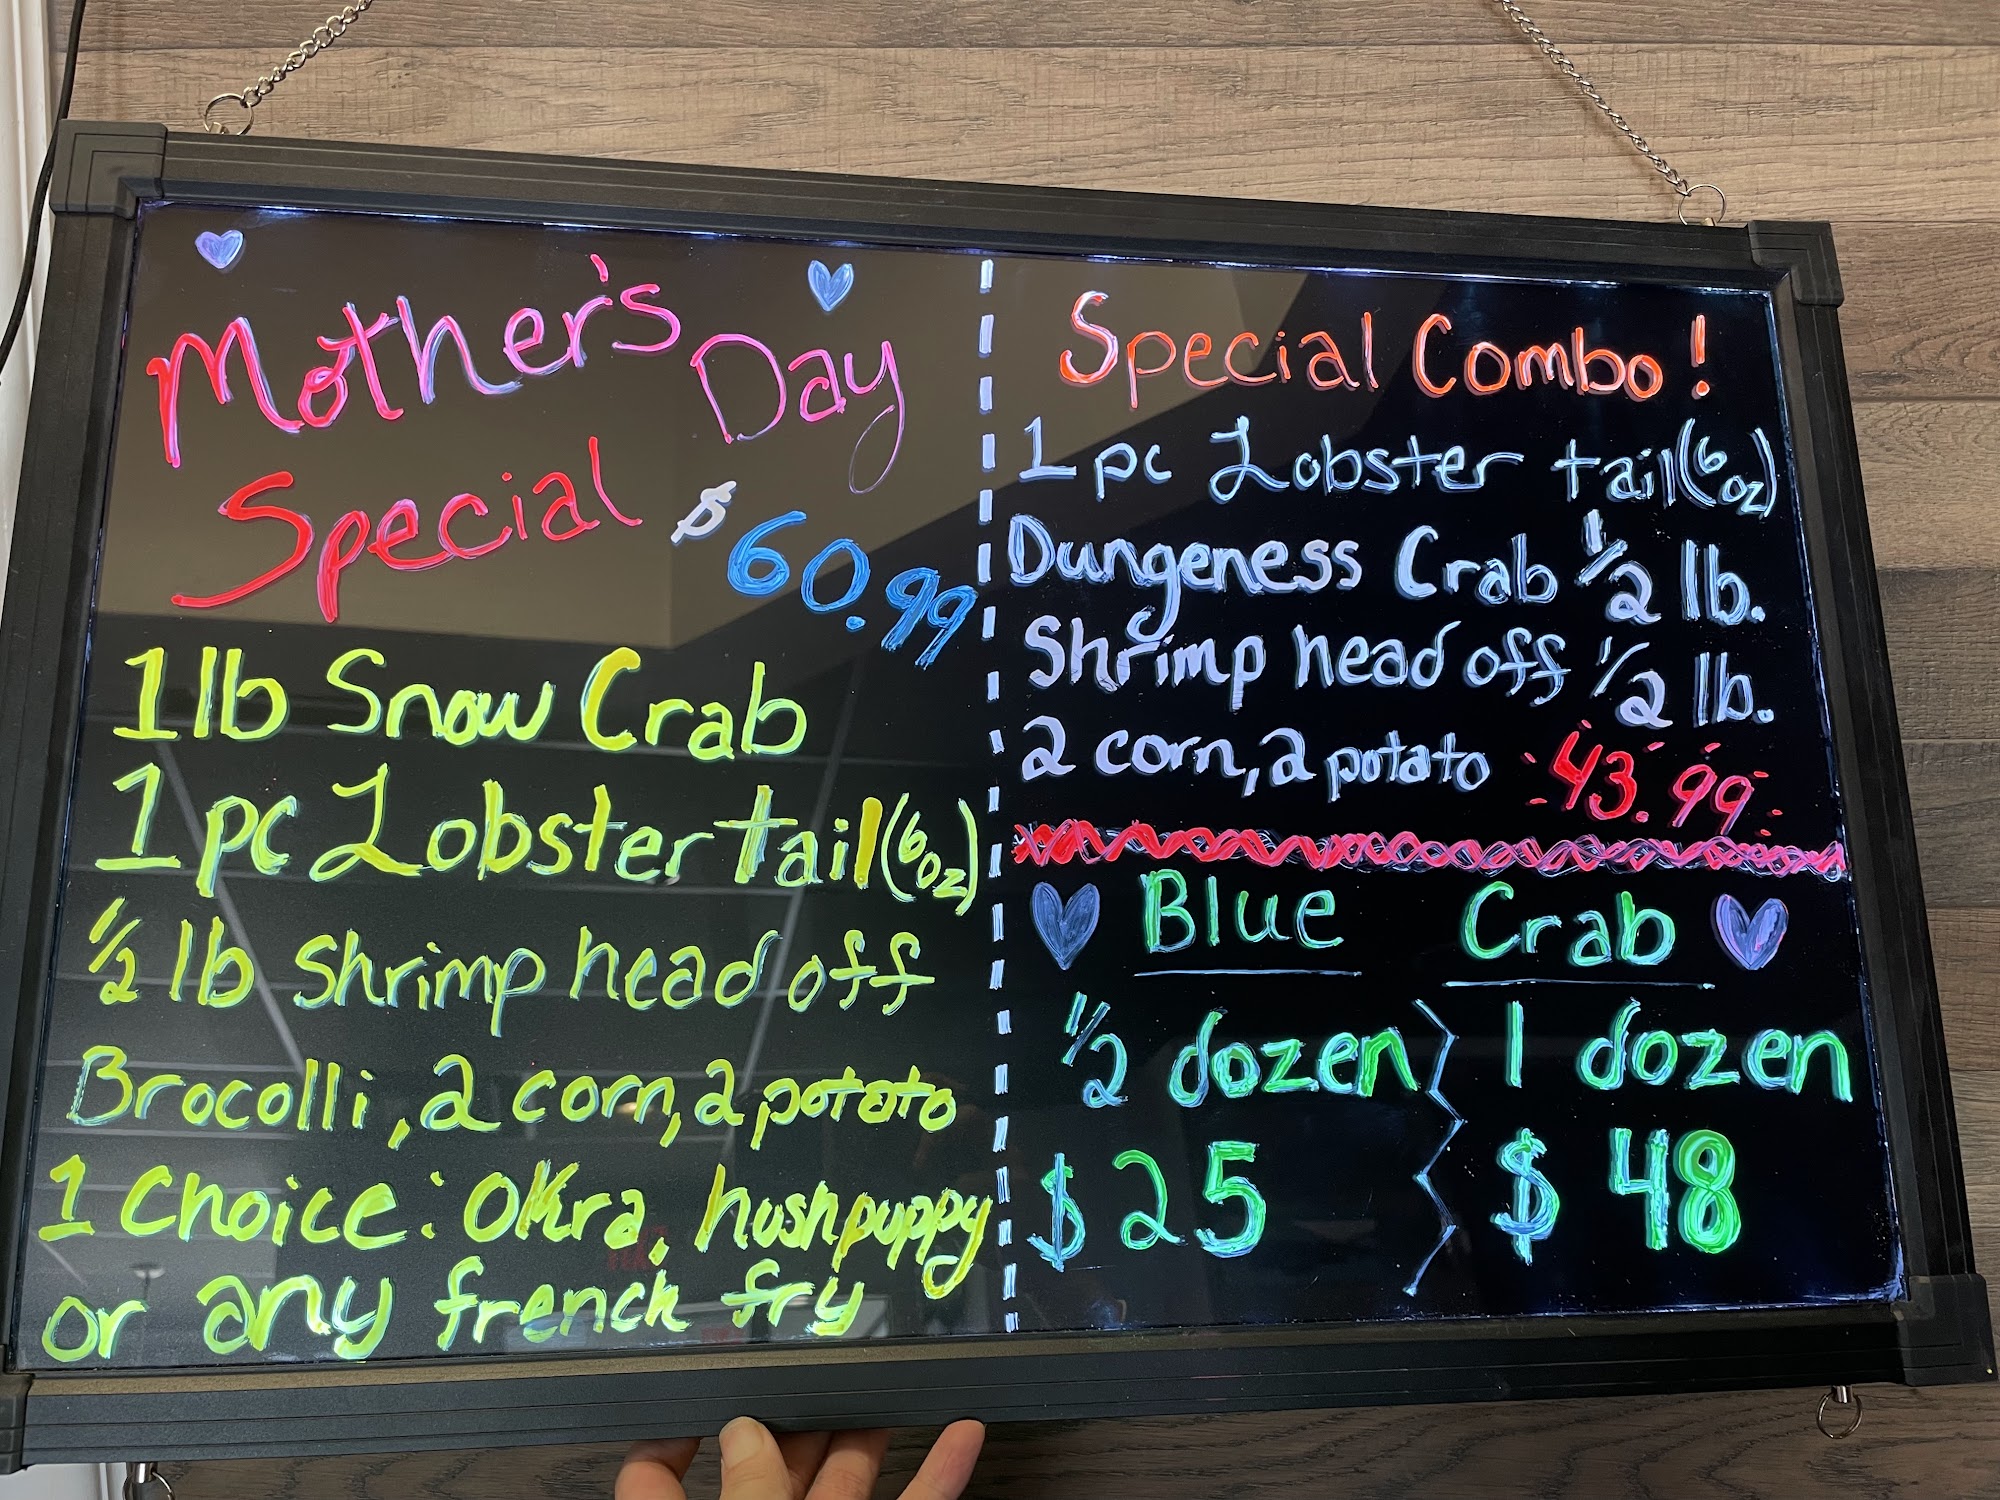 Mother's Day
Special $60.99
1lb Snow Crab
1 pc Lobster tail (6oz)
1/2 lb Shrimp head off
Brocolli, 2 corn, 2 potato
1 Choice: Okra, hushpuppy
or any french fry
Special Combo!
1 pc Lobster tail (6oz)
Dungeness Crab 1/2 lb.
Shrimp head off 1/2 lb.
2 corn, 2 potato 43.99
Blue Crab
1/2 dozen 1 dozen
$25 $48